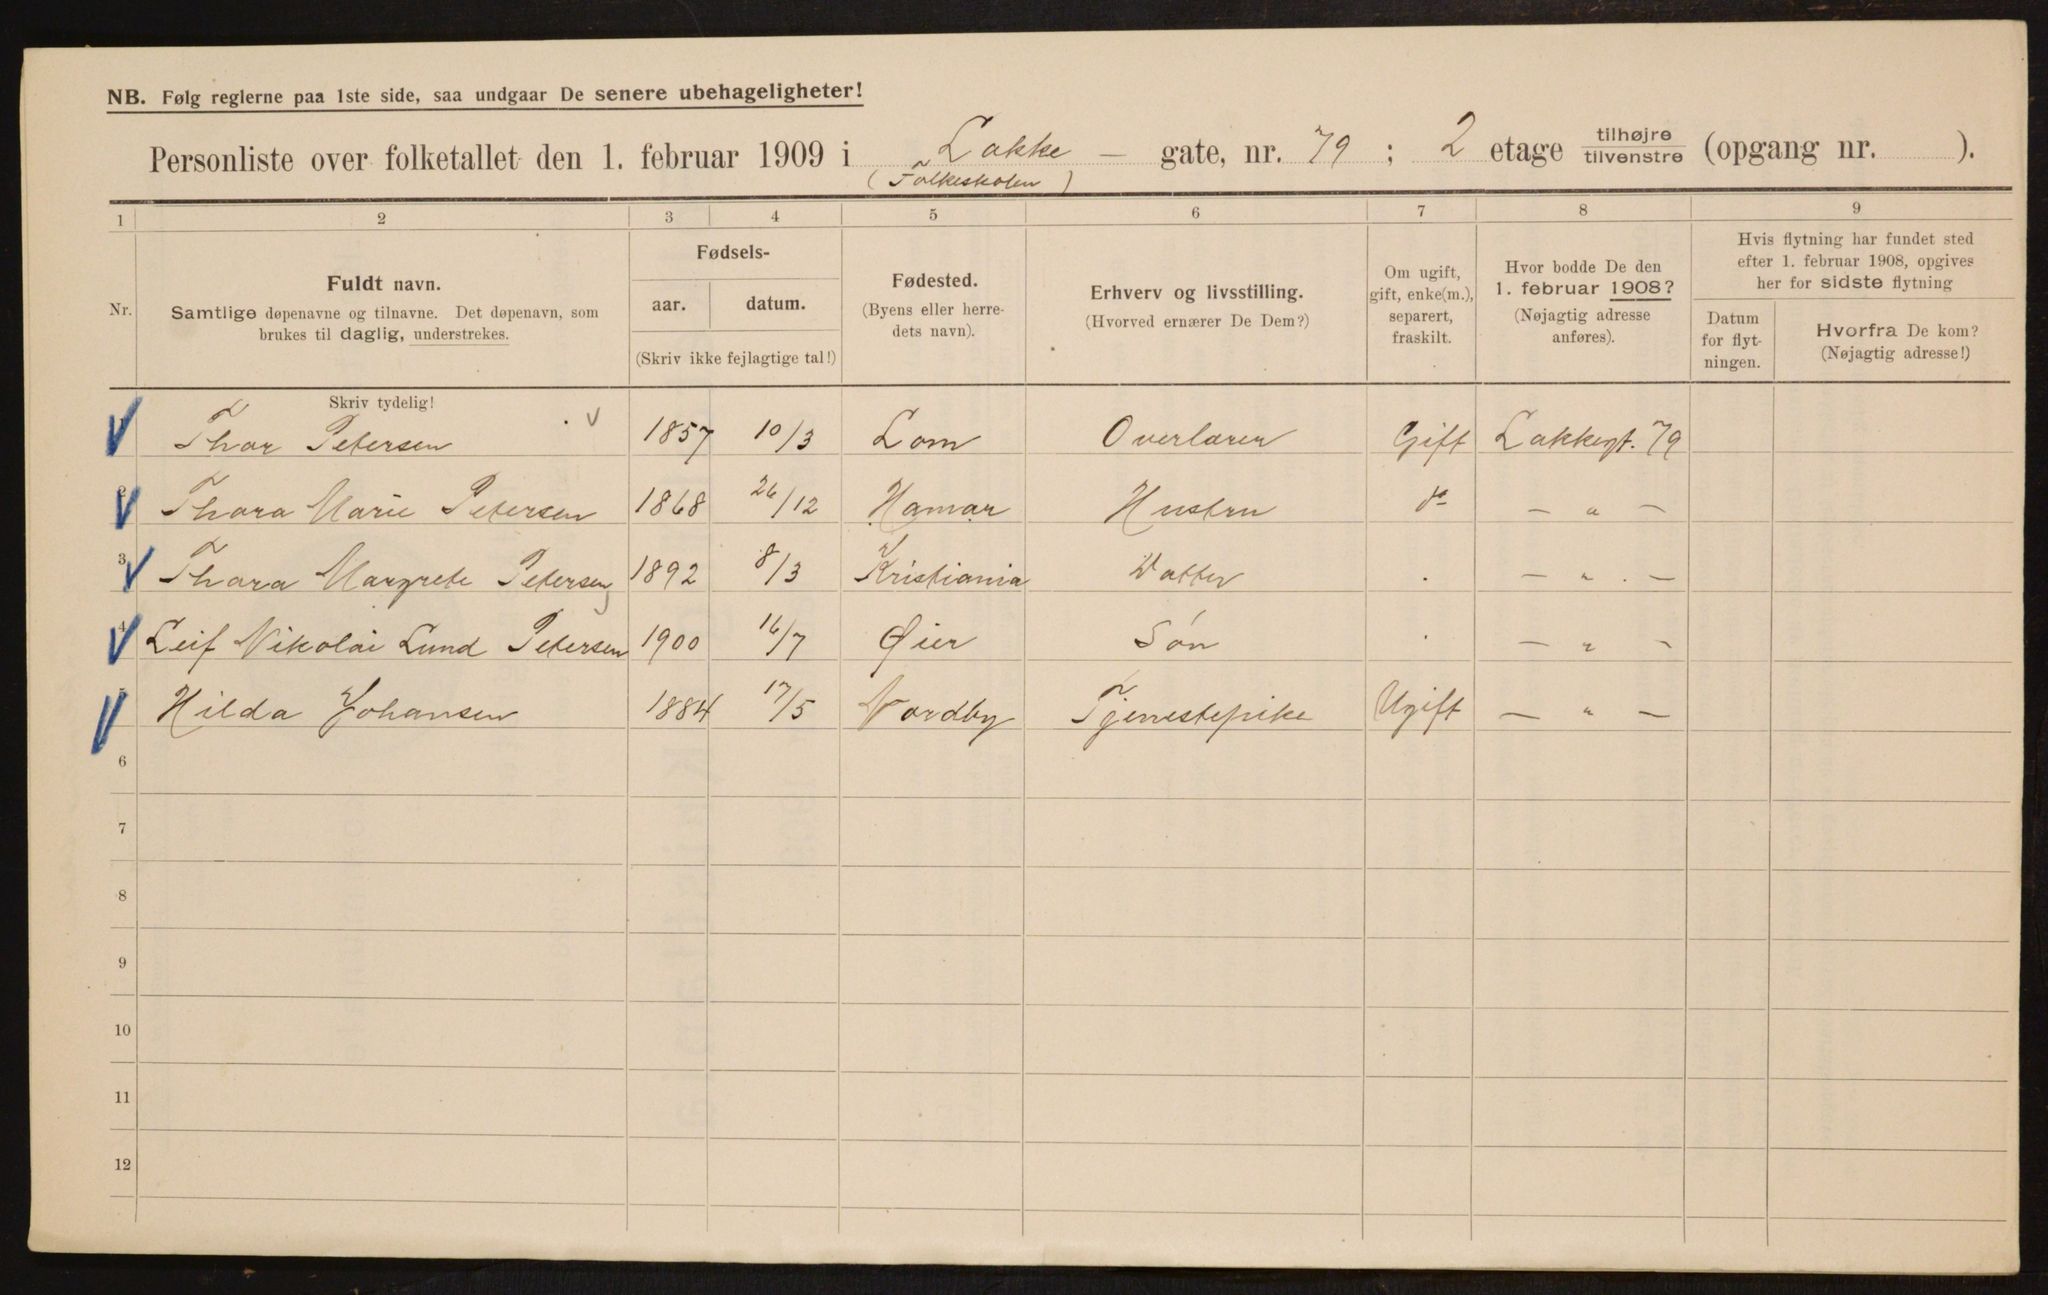 NB. Følg reglerne paa 1ste side, saa undgaar De senere ubehageligheter!
Personliste over folketallet den 1. februar 1909 i Lakke - gate, nr. 79 ; 2 etage tilhøjre tilvenstre (opgang nr. ).
(Folkeskolen)
1 2 3 4 5 6 7 8 9
Nr.
Fuldt navn.
Samtlige døpenavne og tilnavne. Det døpenavn, som
brukes til daglig, understrekes.
Fødsels-
aar. datum.
(Skriv ikke fejlagtige tal!)
Fødested.
(Byens eller herre-
dets navn).
Erhverv og livsstilling.
(Hvorved ernærer De Dem?)
Om ugift,
gift, enke(m.),
separert,
fraskilt.
Hvor bodde De den
1. februar 1908?
(Nøjagtig adresse
anføres).
Hvis flytning har fundet sted
efter 1. februar 1908, opgives
her for sidste flytning
Datum
for flyt-
ningen.
Hvorfra De kom?
(Nøjagtig adresse!)
Skriv tydelig!
Thor Petersen v 1857 10/3 Lom Overlærer Gift Lakkegt. 79
2 Thora Marie Petersen 1868 26/12 Hamar Hustru do - " -
3 Thora Margrete Petersen 1892 8/3 Kristiania Datter . - " . -
4 Leif Nikolai Lund Petersen 1900 16/7 Øier Søn . - " -
5 Hilda Johansen 1884 17/5 Nordby Tjenestepike Ugift - " -
6
7
8
9
10
11
12